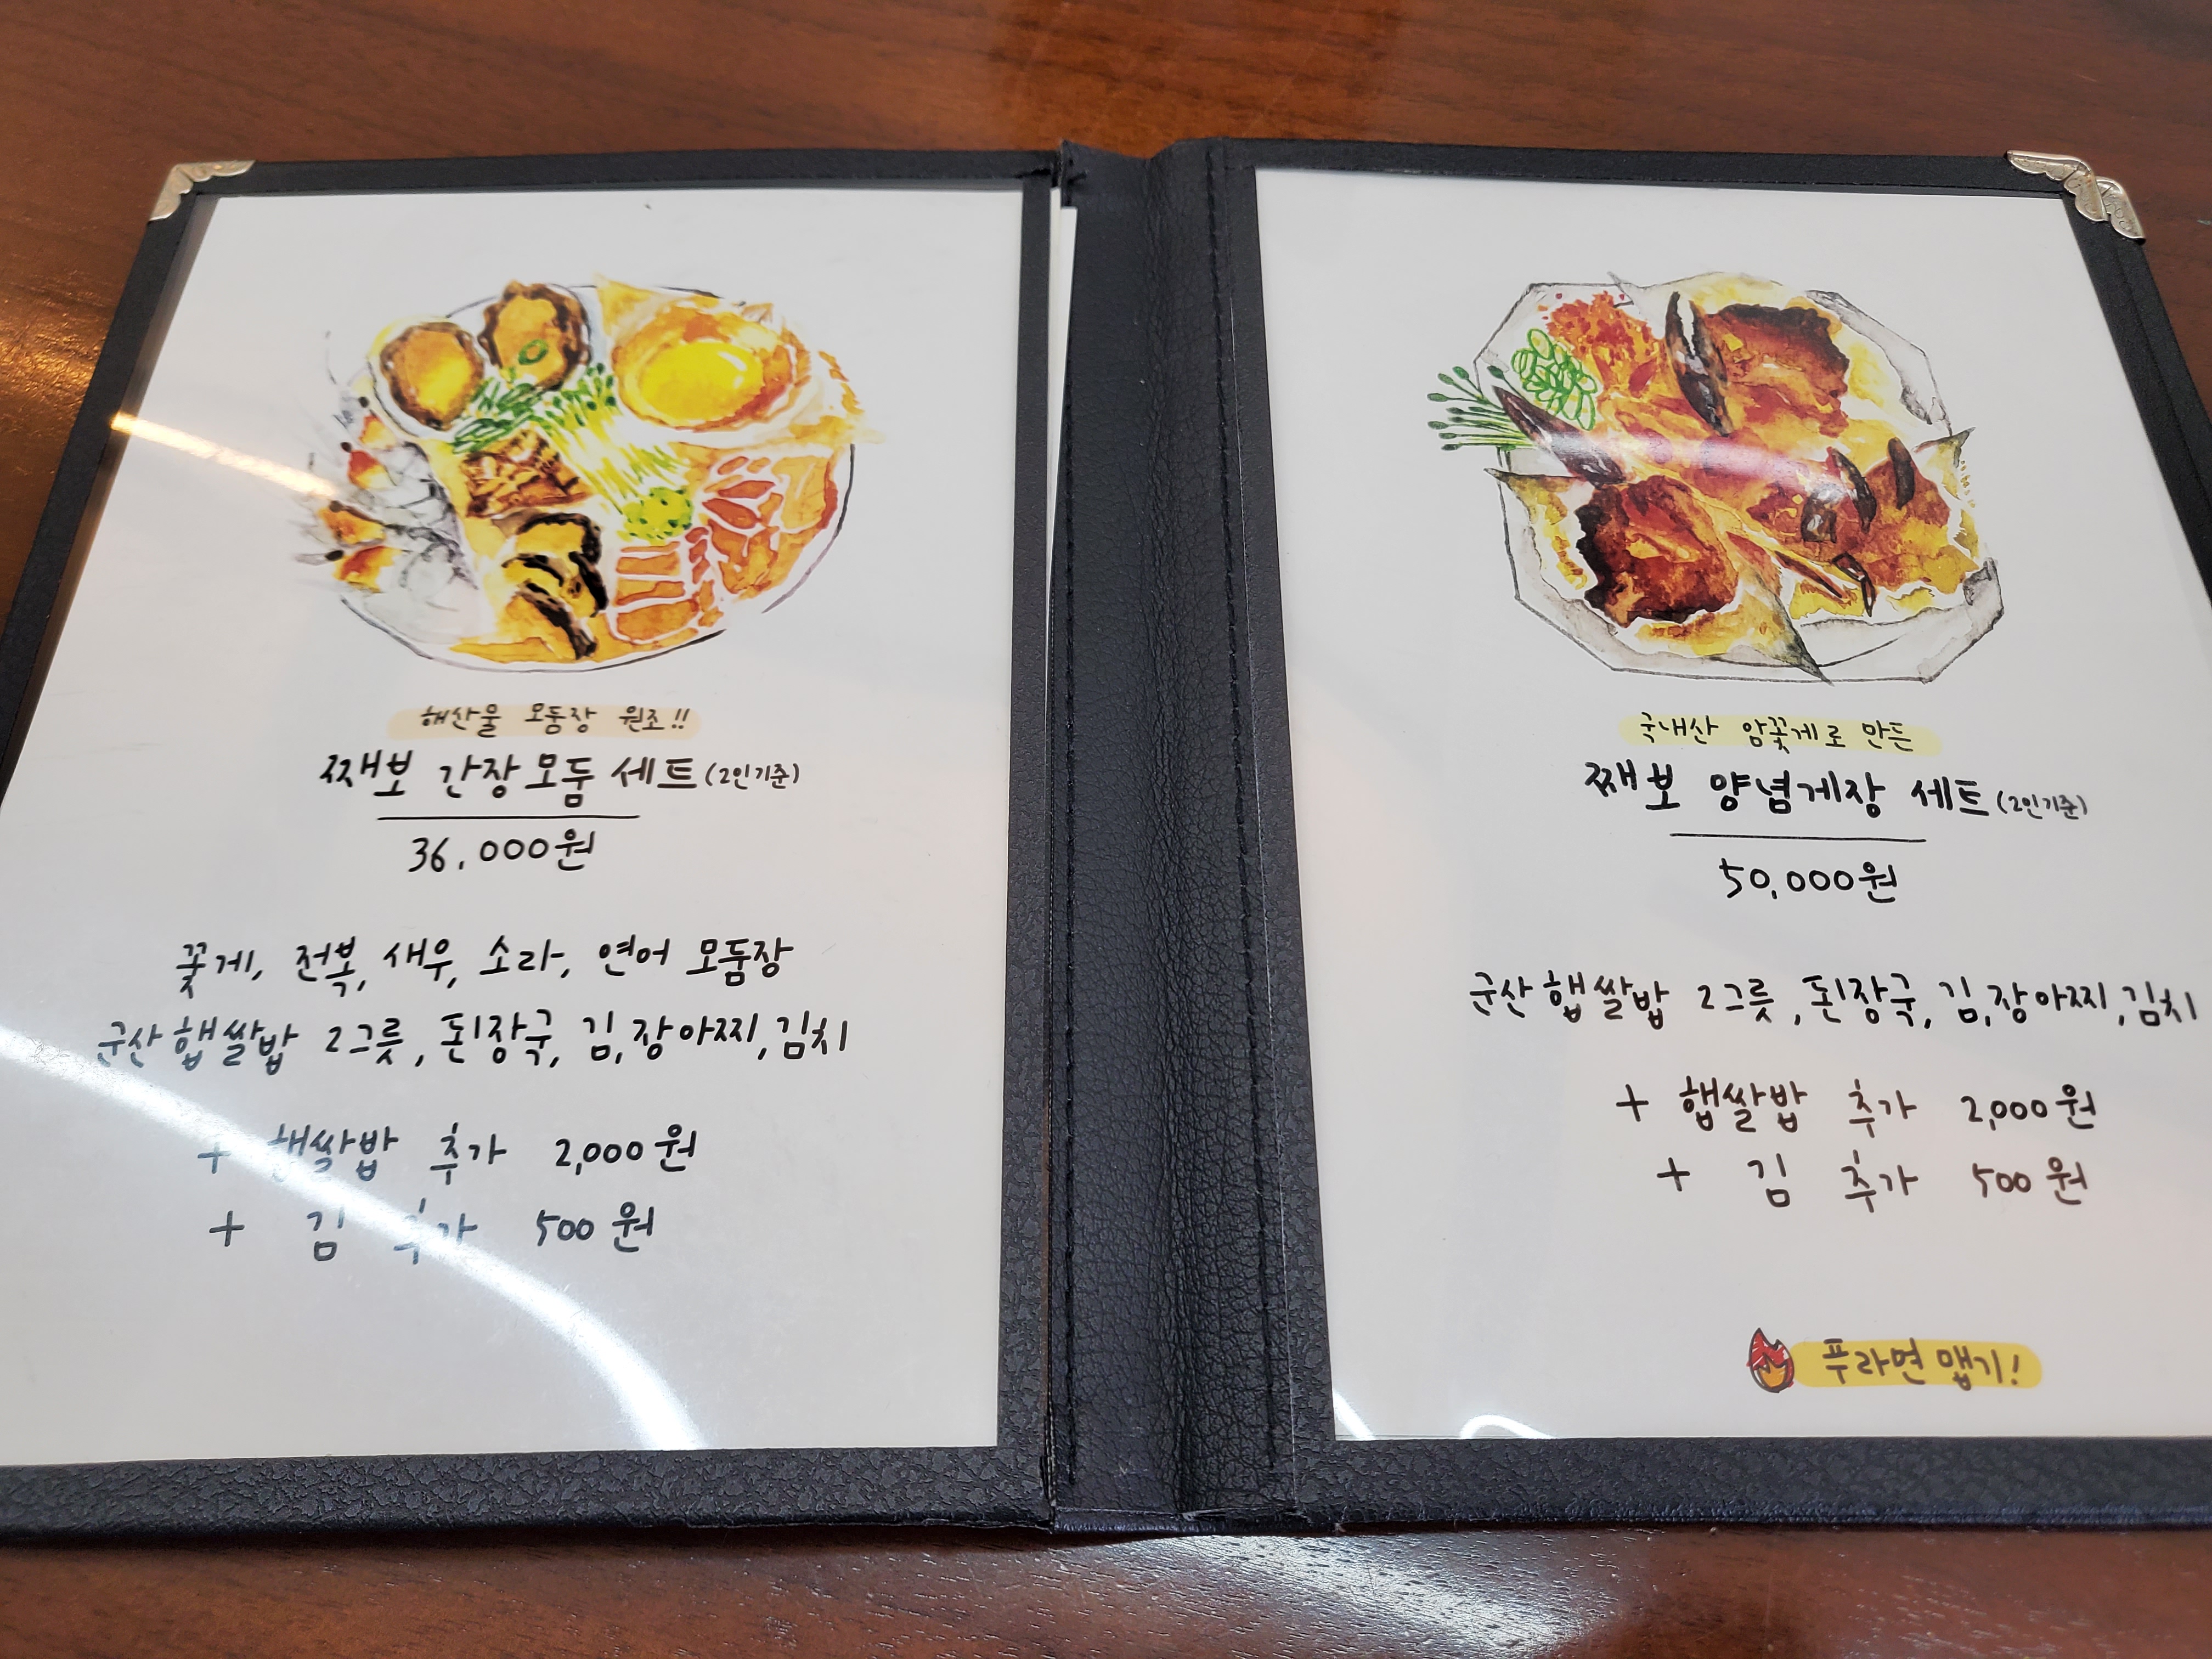 해산물 모둠장 원조!!
째보 간장모둠 세트(2인기준)
36,000원
꽃게, 전복, 새우, 소라, 연어 모둠장
군산햅쌀밥 2그릇, 된장국, 김, 장아찌, 김치
+ 햅쌀밥 추가 2,000원
+ 김 추가 500원
국내산 암꽃게로 만든
째보 양념게장 세트(2인기준)
50,000원
군산햅쌀밥 2그릇, 된장국, 김, 장아찌, 김치
+ 햅쌀밥 추가 2,000원
+ 김 추가 500원
푸라면 맵기!